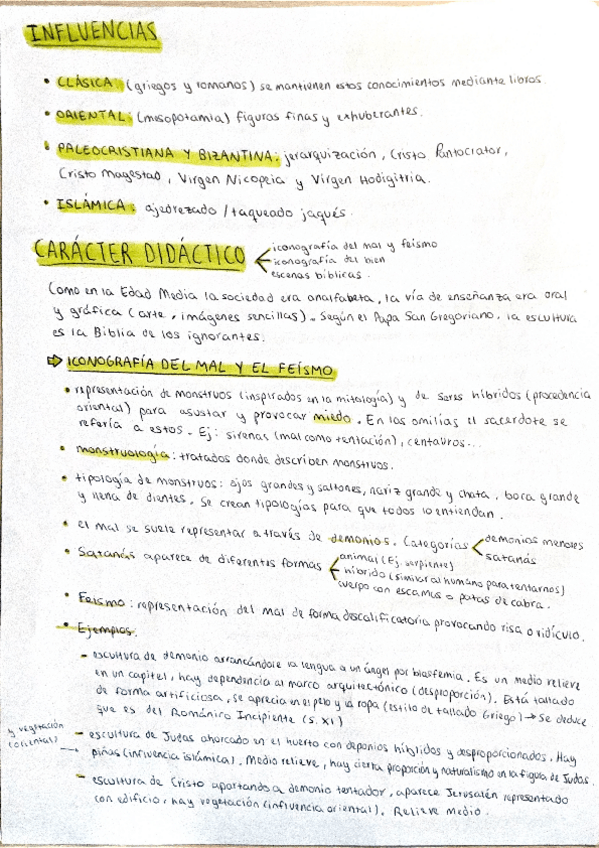 INFLUENCIAS
• CLÁSICA: (griegos y romanos) se mantienen estos conocimientos mediante libros.
• ORIENTAL: (mesopotamia) figuras finas y exhuberantes.
• PALEOCRISTIANA Y BIZANTINA: jerarquización, Cristo Pantocrator,
Cristo Magestad, Virgen Nicopeia y Virgen Hodigitria.
• ISLÁMICA: ajedrezado / taqueado jaqués.
CARÁCTER DIDÁCTICO
iconografía del mal y feísmo
iconografía del bien
escenas bíblicas.
Como en la Edad Media la sociedad era analfabeta, la vía de enseñanza era oral
y gráfica (arte, imágenes sencillas). Según el Papa San Gregoriano, la escultura
es la Biblia de los ignorantes.
⇨ ICONOGRAFÍA DEL MAL Y EL FEÍSMO
• representación de monstruos (inspirados en la mitología) y de seres híbridos (procedencia
oriental) para asustar y provocar miedo. En las omilías el sacerdote se
refería a estos. Ej: sirenas (mal como tentación), centauros...
• monstruología: tratados donde describen monstruos.
• tipología de monstruos: ojos grandes y saltones, nariz grande y chata, boca grande
y llena de dientes. Se crean tipologías para que todos lo entiendan.
• el mal se suele representar através de demonios. Categorías
demonios menores
satanás
• Satanás aparece de diferentes formas
animal (Ej. serpiente)
híbrido (similar al humano para tentarnos)
cuerpo con escamas o patas de cabra.
• Feismo: representación del mal de forma descalificatoria provocando risa o ridículo.
• Ejemplos.
- escultura de demonio arrancándole la lengua a un ángel por blasfemia. Es un medio relieve
en un capitel, hay dependencia al marco arquitectónico (desproporción). Está tallado
de forma artificiosa, se aprecia en el pelo y la ropa (estilo de tallado Griego) → Se deduce
que es del Románico Incipiente (S. XI)
- escultura de Judas ahorcado en el huerto con deponios híbridos y desproporcionados. Hay
piñas (influencia islámica). Medio relieve, hay cierta proporción y naturalismo en la figura de Judas.
y vegetación
(oriental)
- escultura de Cristo apartando a demonio tentador, aparece Jerusalén representado
con edificio, hay vegetación (influencia oriental). Relieve Medio.